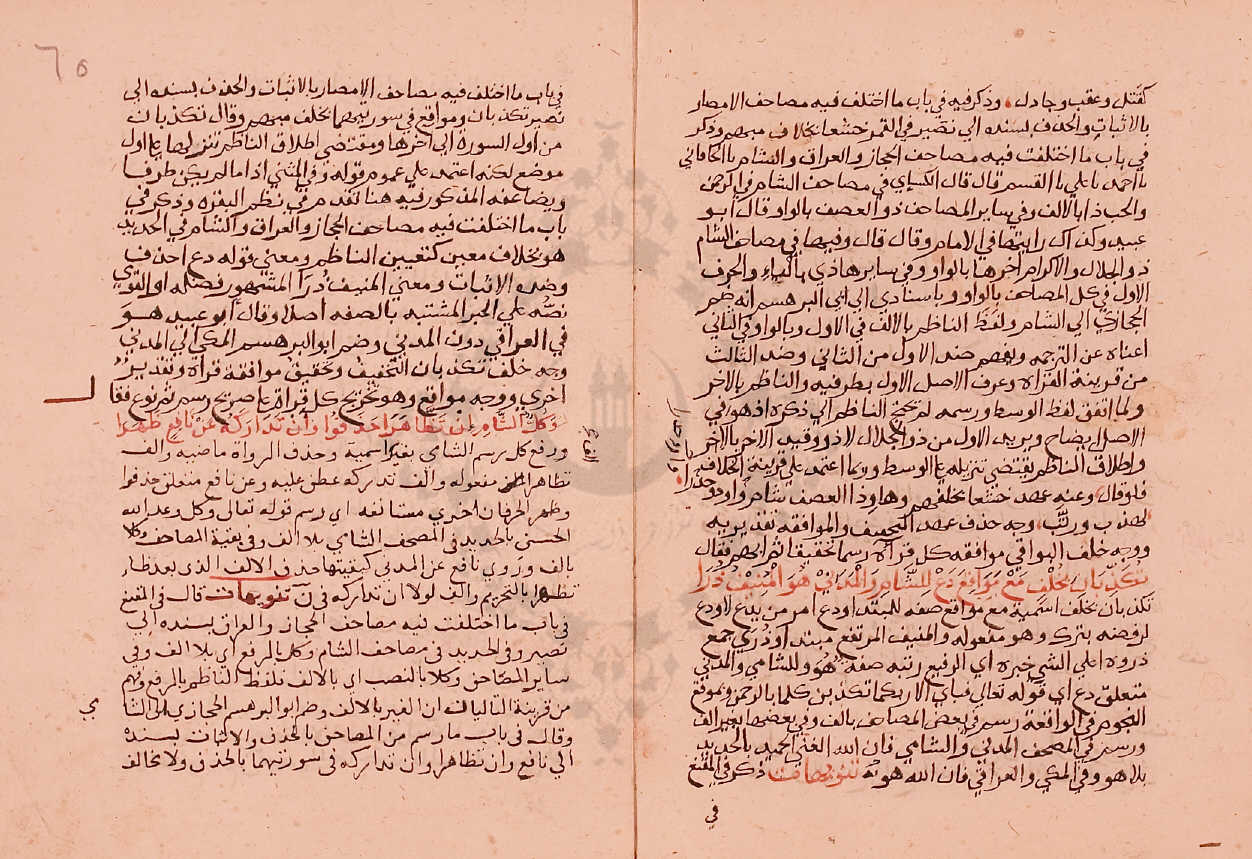 كقتل وعقب وجادل، وذكر فيه في باب ما اختلف فيه مصاحف الامصار
بالاثبات والحذف بسنده الي نصير في القمر خشعا بخلاف مبهم وذكر
في باب ما اختلفت فيه مصاحف الحجاز والعراق والشام بالخاقاني
نا احمد نا علي نا القسم قال قال الكساي في مصاحف الشام في الرحمن
والحب ذا بالالف وفي ساير المصاحف ذو العصف بالواو قال ابو
عبيد وكذلك رايتها في الامام وقال قال وفيها في مصاحف الشام
ذو الجلال والاكرام اخرها بالواو وفي ساير هاذي بالياء والحرف
الاول في كل المصاحف بالواو وباسنادي الي ابي البرهسم انه ضم
الحجازي الي الشام ولفظ الناظم بالالف في الاول وبالواو في الثاني
اغناه عن الترجمه ويفهم ضد الاول من الثاني وضد الثالث
من قرينة القراة وعرف الاصل الاول بطرفيه والناظم بالاخر
ولما اتفق لفظ الوسط ورسمه لم يحتج الناظم الي ذكره اذ هو في
الاصل ايضاح ويريد الاول من ذو الجلال لا ذو وقيد الاخر بالاخر
واطلاق الناظم يقتضي تنزيله علي الوسط وربما اعتمد علي قرينة الخلاف
فلو قال وعنه عهد خشعا بخلفهم وها وذا العصف شام واو ذو
لهذب ورتب، وجه حذف عهد التخفيف والموافقة تقديريه
ووجه خلف البواقي موافقه كل قراة رسما تحقيقا ثم ابهم فقال
تكذبان بخلف مع مواقع دع للشام والمدني هو المنيف ذرا
تكذبان بخلف اسمية مع مواقع صفه للمبتدا ودع امر من يدع لا ودع
لرفضه بترك وهو مفعوله والمنيف المرتفع مبتدا وذري جمع
ذروه اعلي الشي خبره اي الرفيع رتبه صفه هو وللشامي والمدني
متعلق دع اي قوله تعالي فباي الا ربكما تكذبن كلما بالرحمن وبموقع
النجوم في الواقعه رسم في بعض المصاحف بالف وفي بعضها بغير الف
ورسم في المصحف المدني والشامي فان الله الغني الحميد بالحديد
بلا هو وفي المكي والعراقي فان الله هو تنويهات ذكر في المقنع
في
في باب ما اختلف فيه مصاحف الامصار بالاثبات والحذف بسنده الي
نصير تكذبان ومواقع في سورتيهما بخلف مبهم وقال تكذبان
من اول السورة الي اخرها ومقتضي اطلاق الناظم تنزيلها علي اول
موضع لكنه اعتمد علي عموم قوله وفي المثني اذا ما لم يكن طرفا
ويضاعفه المذكور فيه هنا تقدم في نظم البقره وذكر في
باب ما اختلفت فيه مصاحف الحجاز والعراق والشام في الحديد
هو بخلاف معين كتعيين الناظم ومعني قوله دع احذف
وضده الاثبات ومعني المنيف ذرا المشهور فصله او القوي
نصه علي الخبر المشتبه بالصفه اصلا وقال ابو عبيد هو
في العراقي دون المدني وضم ابو البرهسم المكي الي المدني
وجه خلف تكذبان التخفيف وتحقيق موافقة قراة وتقدير
اخري ووجه مواقع وهو تخريج كل قراة علي صريح رسم ثم نوع فقال
وكل الشام ان تظاهرا حذفوا وان تداركه عن نافع ظهرا
ورفع كل رسم الشامي بغير اسمية وحذف الرواة ماضيه والف
تظاهرا مفعوله والف تداركه عطف عليه وعن نافع متعلق حذفوا
وظهر الحرفان اخري مستانفه اي رسم قوله تعالي وكل وعد الله
الحسني بالحديد في المصحف الشامي بلا الف وفي بقية المصاحف وكلا
بالف وروي نافع عن المدني كيفيتها حذف الالف الذي بعد ظاء
تظاهرا بالتحريم والف لولا ان تداركه في ن تنويهات قال في المقنع
في باب ما اختلفت فيه مصاحف الحجاز والعراق بسنده الي
نصير وفي الحديد في مصاحف الشام وكل بالرفع اي بلا الف وفي
ساير المصاحف وكلا بالنصب اي بالالف فلفظ الناظم بالرفع وفهم
من قرينة التاليان ان الغير بالالف وضم ابو البرهسم الحجازي الي الشا
وقال في باب ما رسم من المصاحف بالحذف والاثبات بسنده
الي نافع وان تظاهرا وان تداركه في سورتيهما بالحذف ولا مخالف